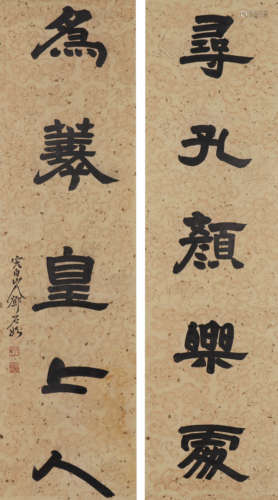 尋孔顏樂處
為羲皇上人
完白山人鄧石如